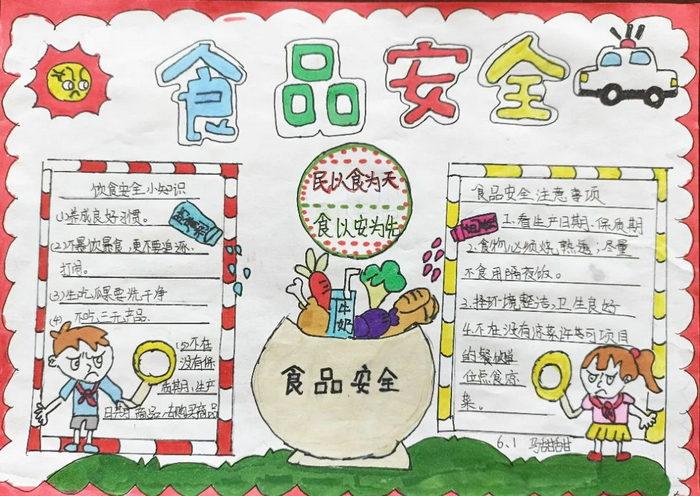 食品安全
民以食为天
食以安为先
饮食安全小知识
(1)养成良好习惯。
(2)不暴饮暴食,更不要追逐
打闹。
(3)生吃瓜果要洗干净
(4) 不吃三无产品
(5)不在
没有保
质期、生产
日期 商品 去购买商品
牛奶
食品安全
食品安全注意事项
1.看生产日期、保质期
2.食物必须烧,熟透;尽量
不食用隔夜饭。
3.择环境整洁,卫生良好
4.不在没有凉菜许可项目
的餐
位点食凉
菜。
6.1 马甜甜